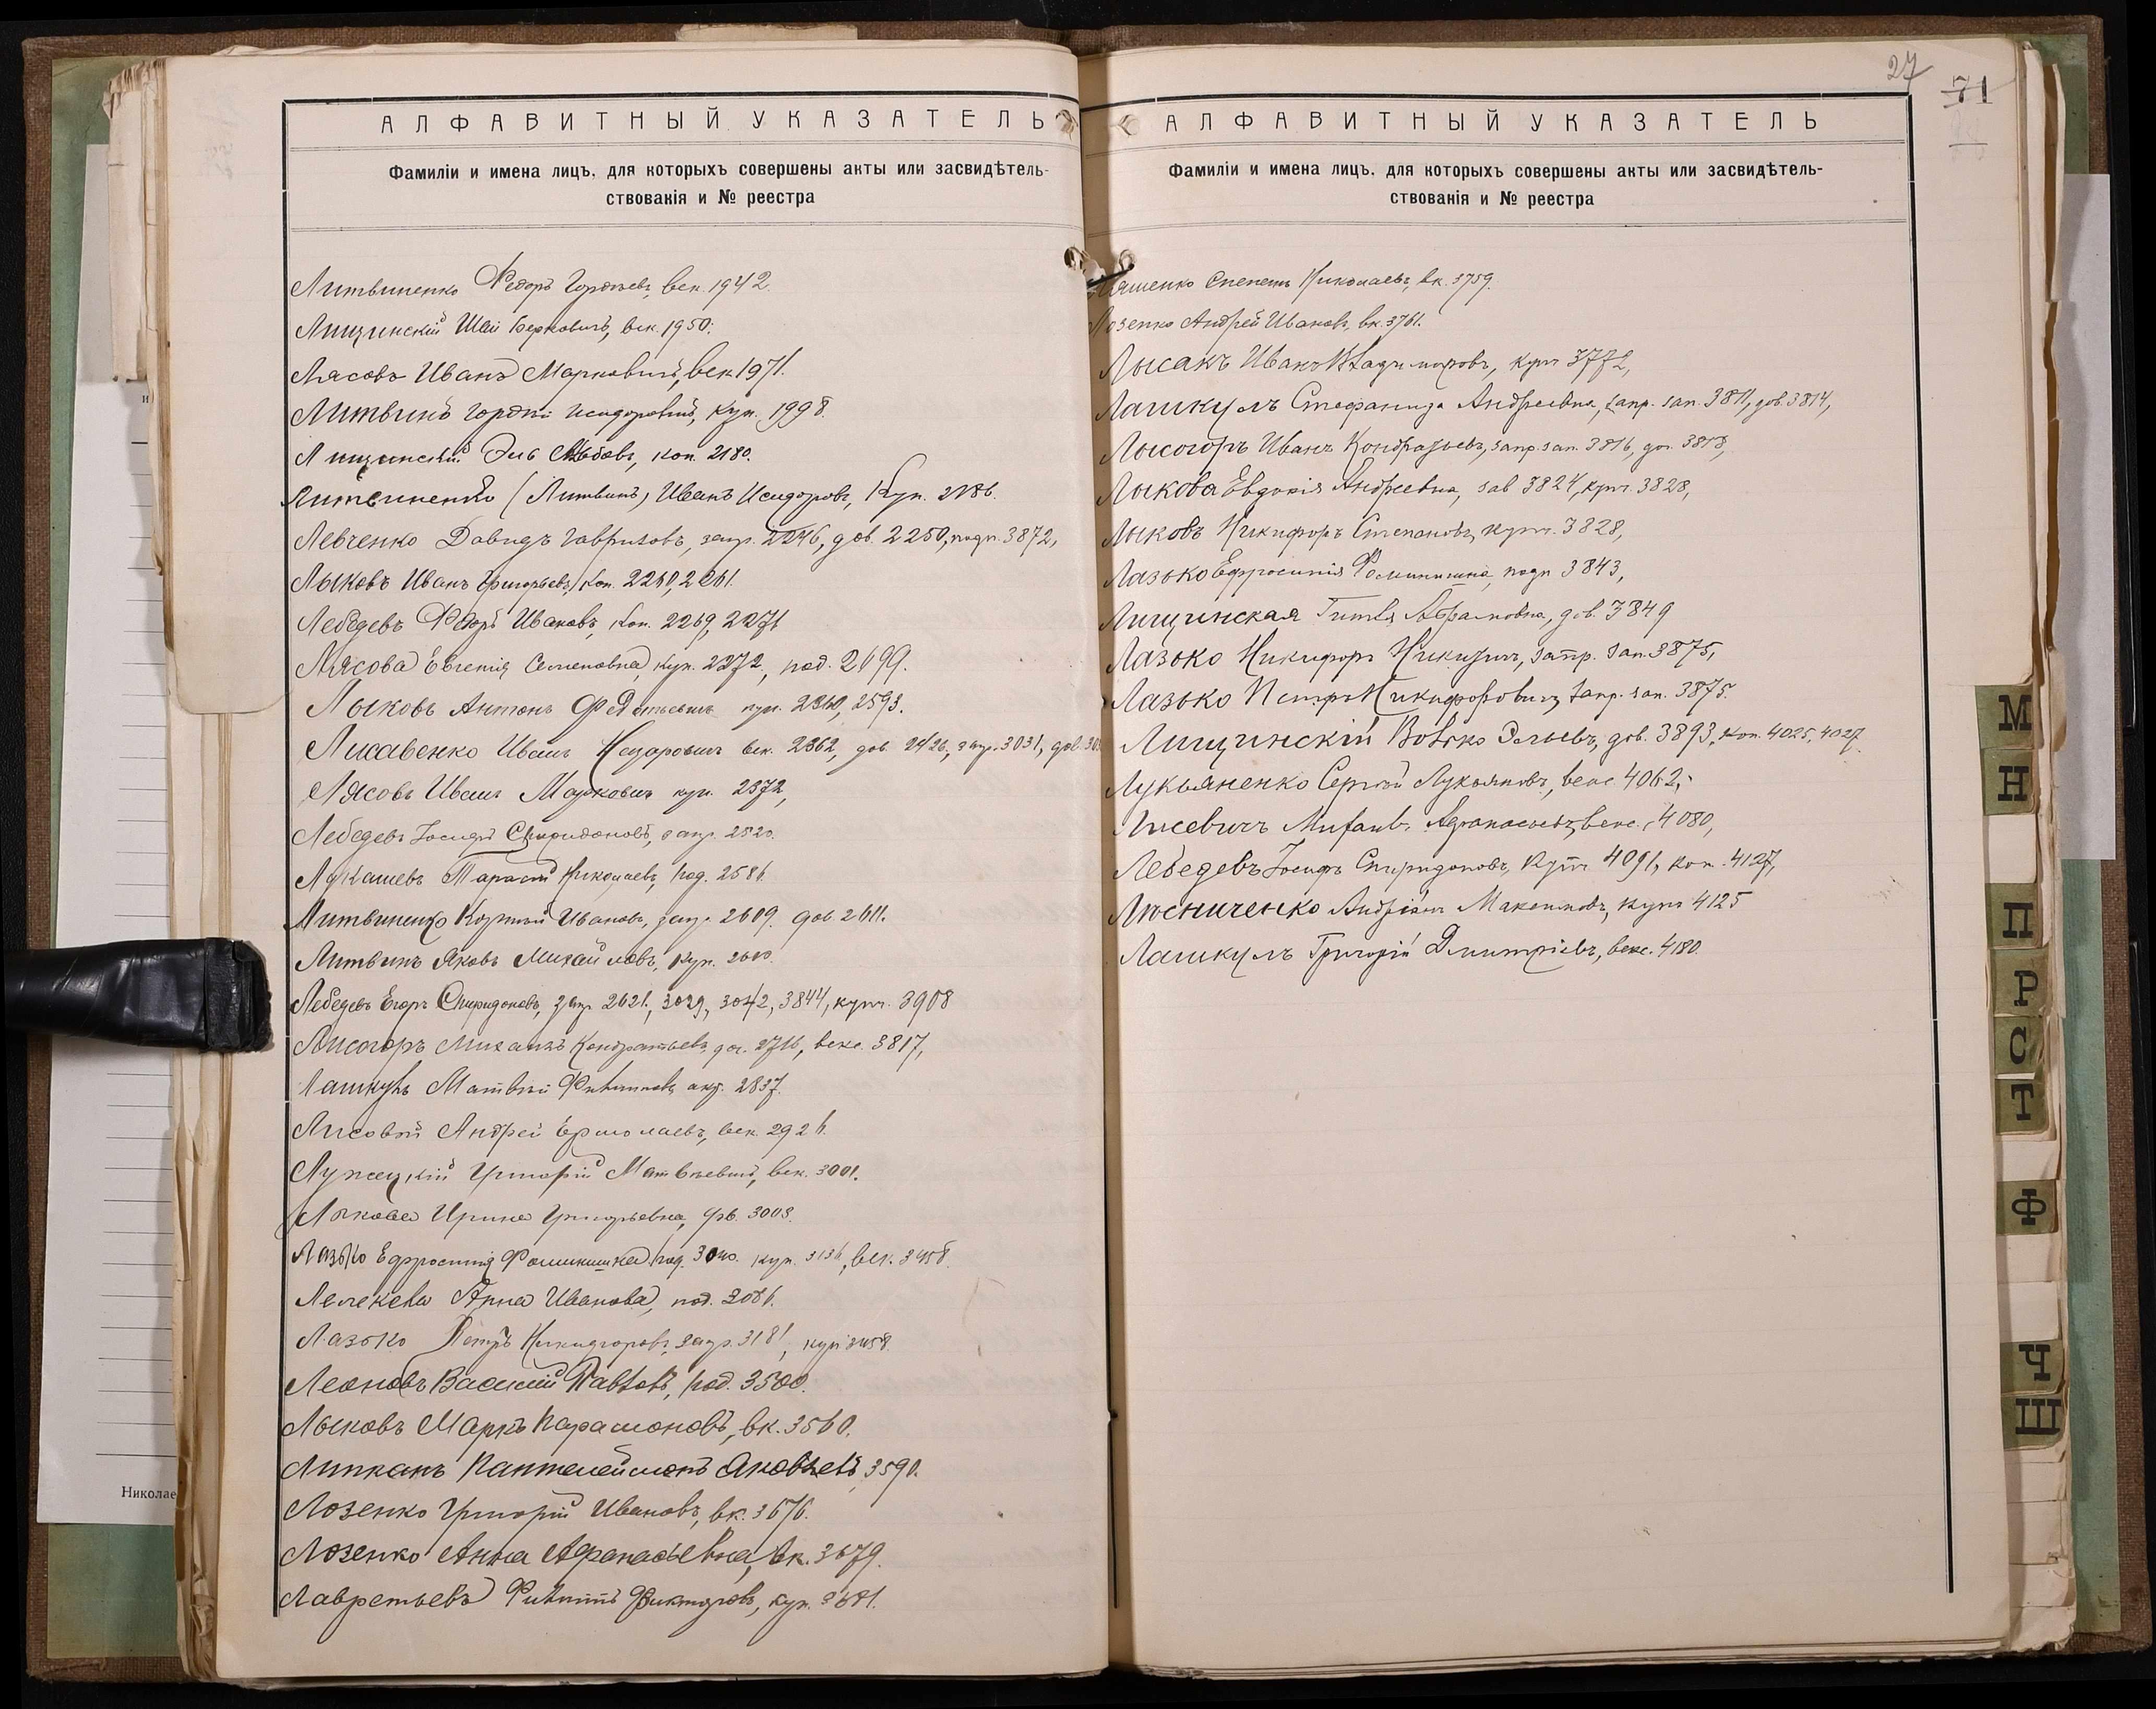 27
71
АЛФАВИТНЫЙ УКАЗАТЕЛЬ
Фамиліи и имена лицъ, для которыхъ совершены акты или засвидѣтель-
ствованія и № реестра
Литвиненко Федоръ Гордѣевъ, век. 1942.
Лищинскій Шая Берковичъ, век. 1950.
Лясовъ Иванъ Марковичъ, век 1971.
Литвинъ Гордѣй Исидоровичъ, куп. 1998.
Лищинскій Эль коп. 2180.
Литвиненко (Литвинъ) Иванъ Исидоровъ, Куп. 2186.
Левченко Давидъ Гавриловъ, запр. 2246, дов. 2250, подп. 3872,
Лыковъ Иванъ Григорьевъ, Коп. 2260, 2261.
Лебедевъ Федоръ Ивановъ, Коп. 2269, 2271
Лясова Евгенія Семеновна, куп. 2272, под. 2699.
Лыковъ Антонъ куп. 2593.
Лисавенко Иванъ Назаровичъ век. 2362, дов. 2426, запр. 3031, дов.
Лясовъ Иванъ Марковичъ куп. 2372,
Лебедевъ Іосифъ Спиридоновъ, запр. 2520.
Лукашевъ Тарасій Николаевъ, под. 2586.
Литвиненко Козьма Ивановъ, запр. 2609. дов 2611.
Литвинъ Яковъ Михайловъ, куп. 2610.
Лебедевъ Егоръ Спиридоновъ, запр. 2621, 3029, 3042, 3844, купч. 3908
Лисогоръ Михаилъ Кондратьевъ, дог. 2716, векс. 3817,
Лашкулъ Матвѣй Филипповъ, акт. 2837.
Лисовой Андрей Ермолаевъ, век. 2926.
Лужецкій Григорій Матвѣевичъ, век. 3001.
Лыкова Ирина Григорьевна, дов. 3003.
Лазько Ефросинія Фоминишна, под. 3040. куп. 3136, век. 3458.
Лелекова Анна Иванова, под. 3086.
Лазько Петръ Никифоровъ, запр. 3181, куп. 3458.
Леоновъ Василій Павловъ, под. 3500.
Лыковъ Маркъ Парамоновъ, вк. 3560.
Липканъ Пантелеймонъ Яковлевъ, 3590.
Лозенко Григорій Ивановъ, вк. 3676.
Лозенко Анна Афанасьевна, вк. 3679.
Лаврентьевъ Филиппъ Викторовъ, куп. 3681.
АЛФАВИТНЫЙ УКАЗАТЕЛЬ
Фамиліи и имена лицъ, для которыхъ совершены акты или засвидѣтель-
ствованія и № реестра
Степанъ Николаевъ, вк. 3759.
Лозенко Андрей Ивановъ, вк. 3761.
Лысакъ Иванъ Владимировъ, купч 3772,
Лашкулъ Стефанида Андреевна, запр. зап. 3811, дов. 3814,
Лысогоръ Иванъ Кондратьевъ, запр. зап. 3816, дог. 3818,
Лыкова Евдокія Андреевна, зав 3824, купч. 3828,
Лыковъ Никифоръ Степановъ, купч. 3828,
Лазько Ефросинія Фоминишна, подп 3843,
Лищинская Гитля Абрамовна, дов. 3849
Лазько Никифоръ Никитичъ, запр. зап. 3875,
Лазько Петръ Никифоровичъ, запр. зап. 3875.
Лищинскій Волько Эльевъ, дов. 3893, Коп. 4025, 4027
Лукьяненко Сергѣй Лукьяновъ, векс 4062,
Лисевичъ Михаилъ Афанасьевъ, векс. 4080,
Лебедевъ Іосифъ Спиридоновъ, Купч 4091, коп. 4127,
Лысниченко Андріанъ Максимовъ, купч 4125
Лашкулъ Григорій Дмитріевъ, векс. 4180.
М
Н
П
Р
С
Т
Ф
Ч
Ш
Николае